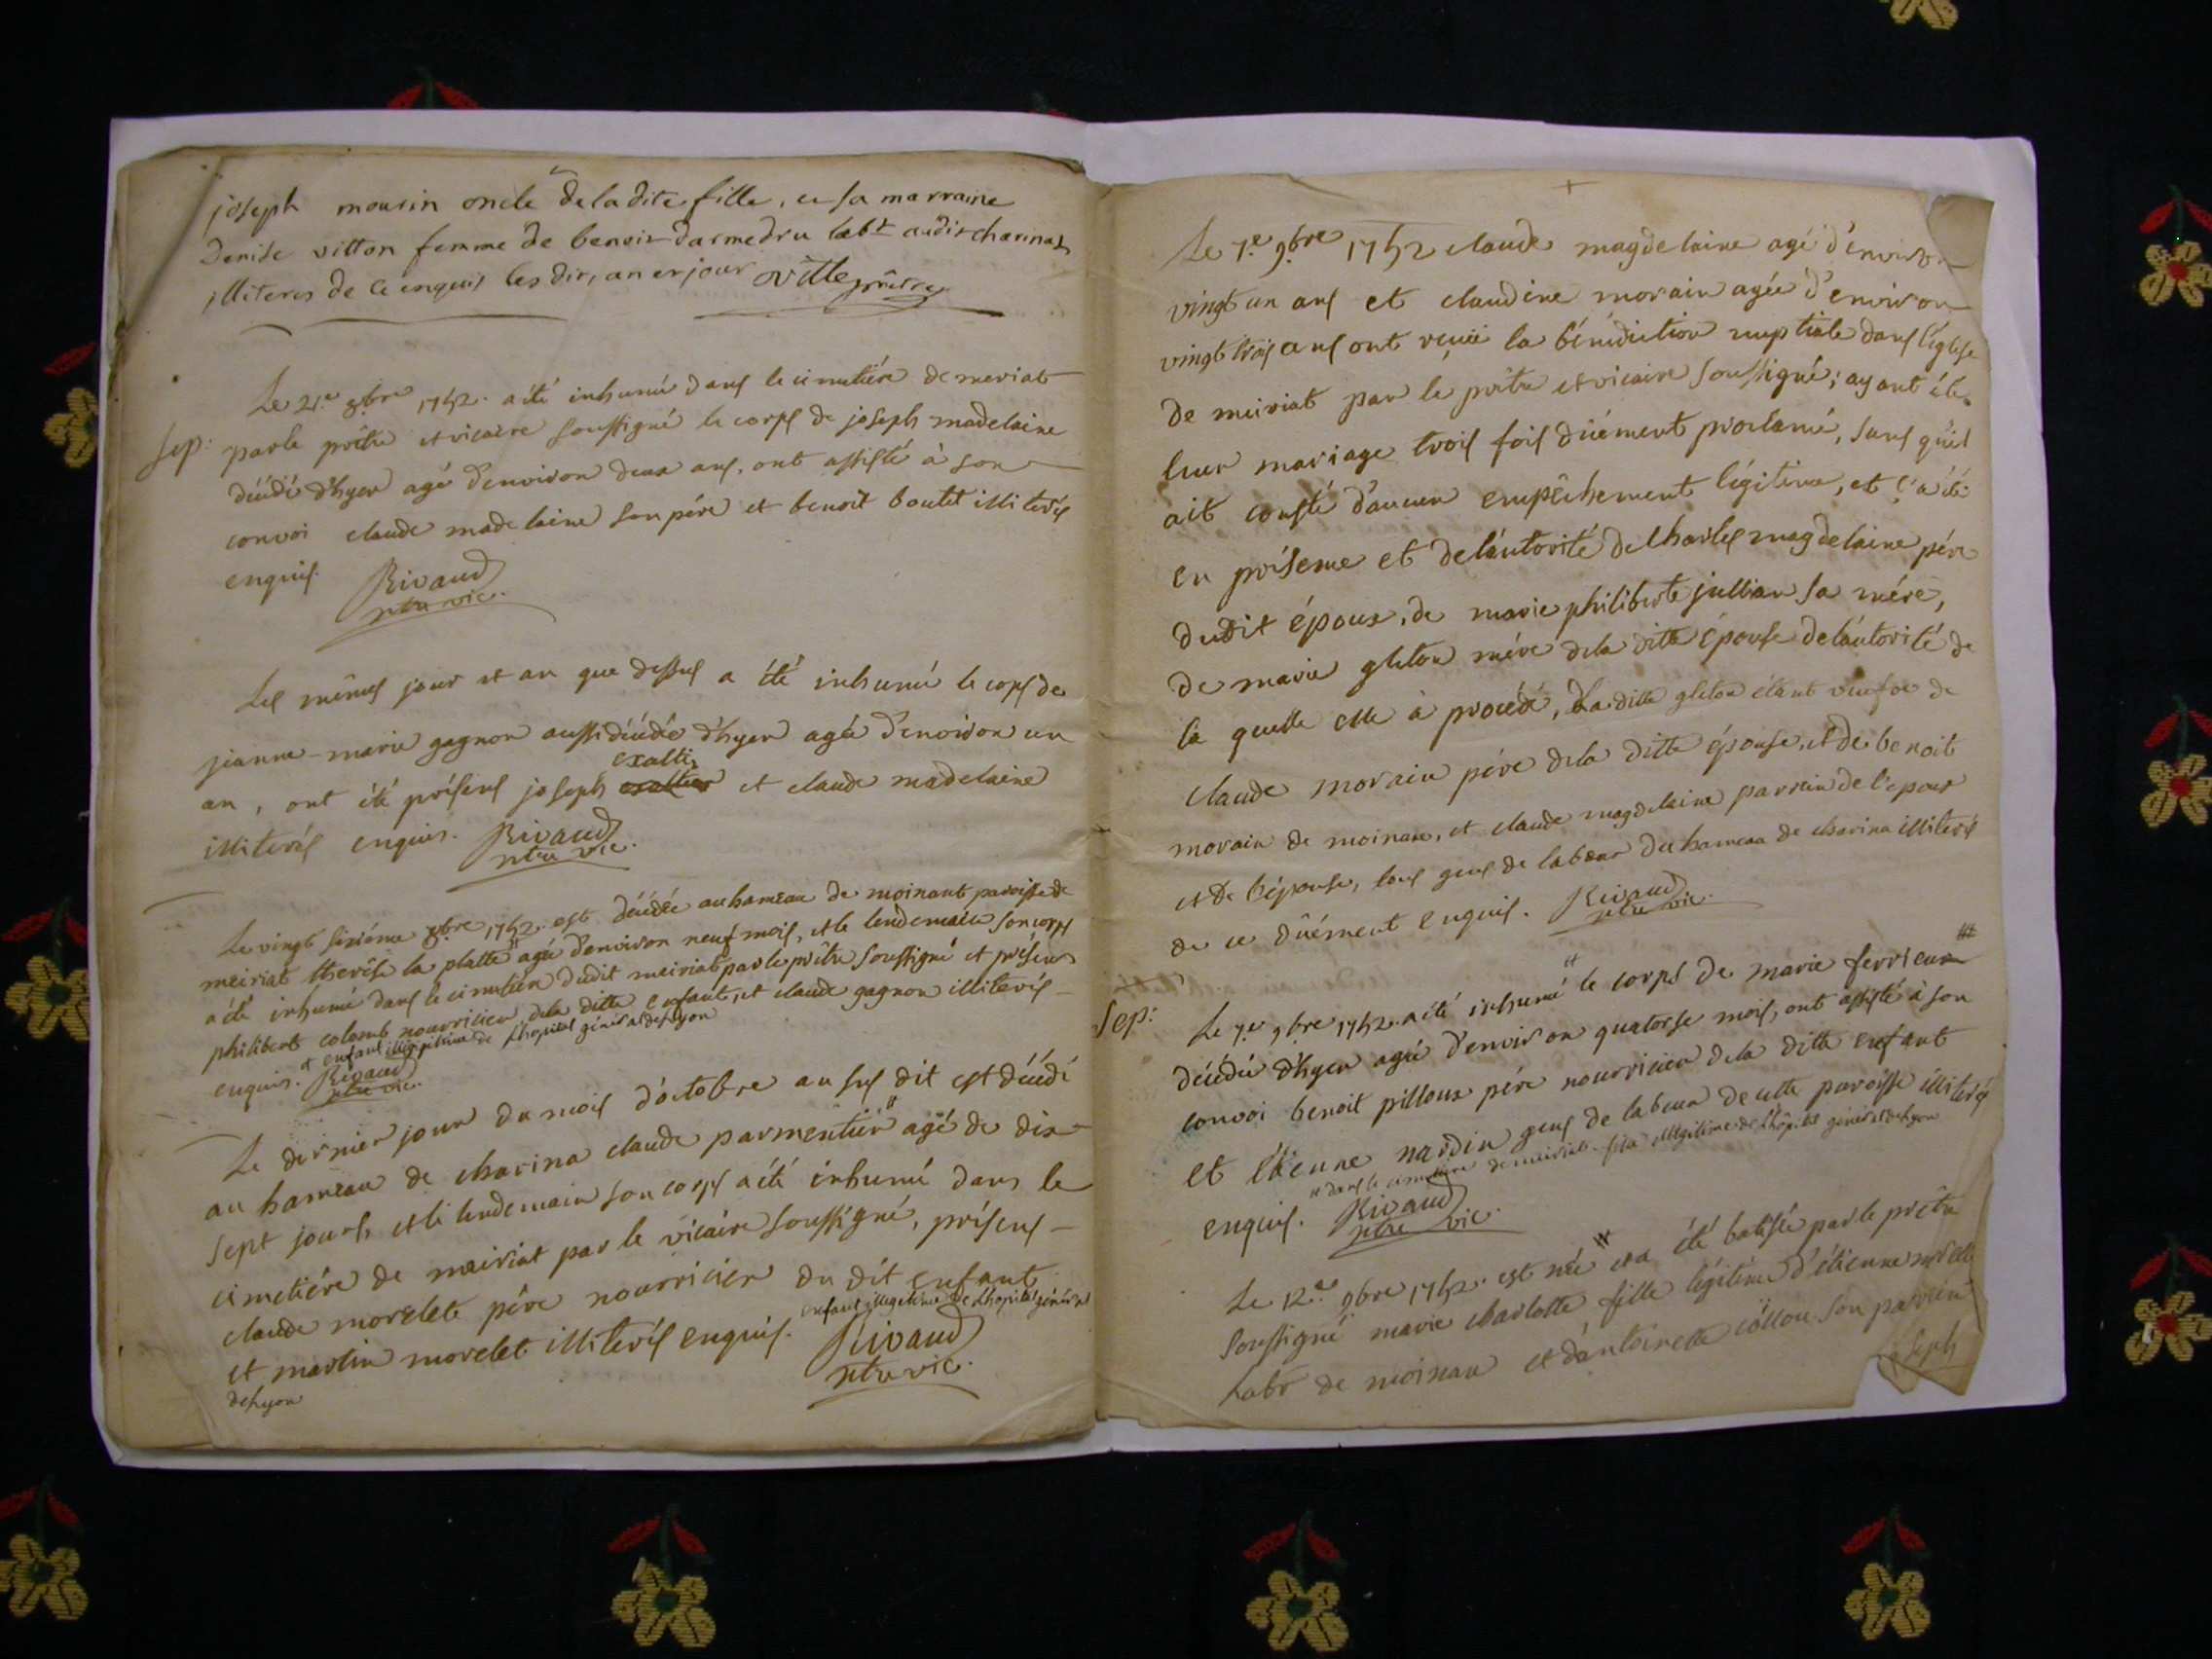 joseph mourin oncle de la dite fille, et sa marraine
Denise vitton femme de benoit darmedru labr audit charinas
illiteres de ce enquis les dit, an et jour Oville prêtre
Le 21e 8bre 1752. a été inhumé dans le cimetiére de meriat
Sep: par le prêtre et vicaire soussigné le corps de joseph madelaine
décédé d'hyer agé d'environ deux ans, ont assisté à son
convoi claude madelaine son pére et benoit boutet illiterés
enquis. Rivaud
ptre vic.
Les mêmes jour et an que dessus a été inhumé le cops de
jeanne-marie gagnon aussi décédée d'hyer agée d'environ un
exaltier
an, ont été présens joseph et claude madelaine
illiterés enquis. Rivaud
ptre vic.
Le vingt sixiéme 8bre 1752. est décédée au hameau de moinant paroisse de
meiriat therése la platte agée d'environ neuf mois, et le lendemain son corps
a été inhumé dans le cimetiére dudit meiriat par le prêtre soussigné et présens
philibert colomb nourricier de la ditte enfant, et claude gagnon illiterés
+ enfant illégitime de l'hopital général de lyon
enquis. Rivaud
ptre vic.
Le dernier jour du mois d'octobre an sus dit est décédé
au hameau de charina claude parmentier" agé de dix
sept jours et le lendemain son corps a été inhumé dans le
cimetiére de meiriat par le vicaire soussigné, présens
claude morelet pére nourricier du dit enfant
enfant illegitime de l'hopital général
et martin morelet illiterés enquis. Rivaud
de lyon
ptre vic.
+
Le 7e 9bre 1752 claude magdelaine agé d'environ
vingt un ans et claudine morain agée d'environ
vingt trois ans ont reçuë la bénédiction nuptiale dans l'église
de meiriat par le prêtre et vicaire soussigné; ayant été
leur mariage trois fois düement proclamé, sans qu'il
ait consté d'aucun empêchement légitime, et ç'a été
en présence et de l'autorité de charles magdelaine pére
dudit époux, de marie philiberte jullian sa mére,
de marie gleton mére de la ditte épouse de l'autorité de
la quelle elle à procédé, La ditte gleton étant veufve de
claude morain pére de la ditte épouse, et de benoit
morain de moinan, et claude magdelaine parrain de l'epoux
et de l'épouse, tous gens de labeur du hameau de charina illiterés
de ce düement enquis. Rivaud
ptre vic.
Sep: Le 7e 9bre 1752. a été inhumé" le corps de marie ferrieux
décédée d'hyer agée d'environ quatorse mois, ont assisté à son
convoi benoit pilloux pére nourricier de la ditte enfant
et étienne nardin gens de labeur de cette paroisse illiterés
" dans le cimetiere de meiriat. fille illégitime de l'hôpital général de lyon
enquis. Rivaud
ptre vic.
Le 12e 9bre 1752. est née et a été batisée par le prêtre
soussigné marie charlotte fille légitime d'étienne
Labr de moinan et d'antoinette son parrein
joseph